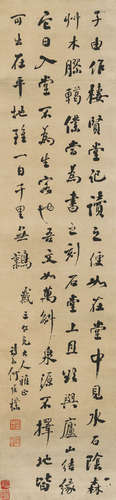 子由作棲賢堂記讀之便如在堂見水石陰森
艸木膠轕僕當為書之刻石堂上且欲與廬山結緣
它日入堂不為生客也吾文如萬斛泉源不擇地皆
可出在平地雖一日千里無難 三仁兄大人雅正
何紹基